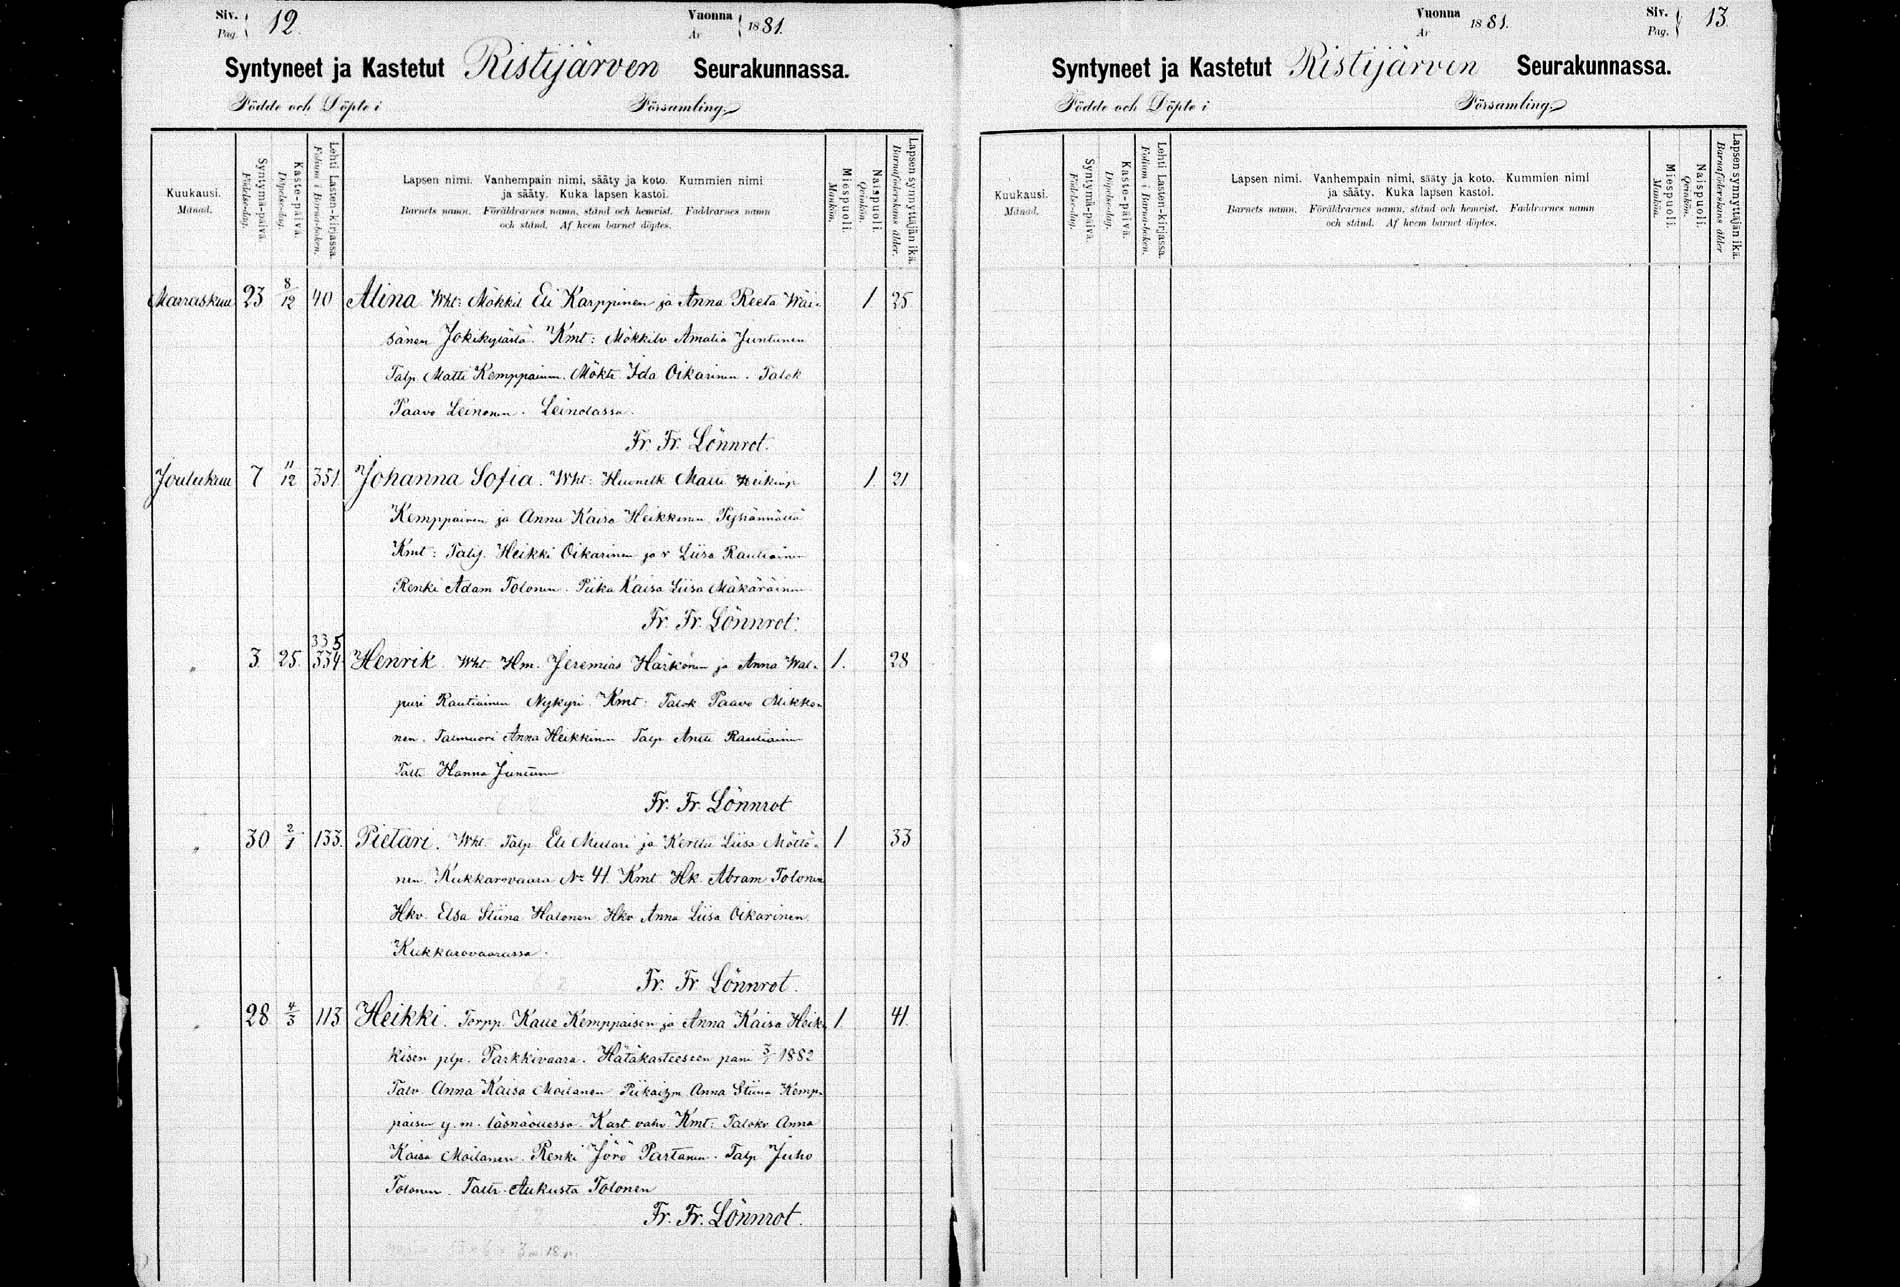 Siv. Pag. 12. Vuonna År 1881.
Syntyneet ja Kastetut Ristijärven Seurakunnassa.
Födde och Döpte i Församling.
Kuukausi. Månad.
Syntymä-päivä. Födelse-dag.
Kaste-päivä. Döpelse-dag.
Lehti Lasten-kirjassa. Folium i Barna-boken.
Lapsen nimi. Vanhempain nimi, sääty ja koto. Kummien nimi
ja sääty. Kuka lapsen kastoi.
Barnets namn. Föräldrarnes namn, stånd och hemvist. Faddrarnes namn
och stånd. Af hvem barnet döptes.
Miespuoli. Mankön.
Naispuoli. Qvinkön.
Lapsen synnyttäjän ikä. Barnaföderskans ålder.
Marraskuu 23 8/12 40 Alina Wht: Mökkil Eli Karppinen ja Anna Reeta Wäi- 1 25
sänen Jokikylästä. Kmt: Mökkilv Amalia Juntunen
Talp Matti Kemppainen. Mökt: Ida Oikarinen. Talok
Paavo Leinonen. Leinolassa.
Fr. Fr. Lönnrot.
Joulukuu 7 11/12 351 Johanna Sofia. Wht: Matti Heikinp 1. 21
Kemppainen ja Anna Kaisa Heikkinen
Kmt: Talij. Heikki Oikarinen ja v Liisa Rautiainen
Renki Adam Tolonen. Piika Kaisa Liisa Mäkäräinen
Fr. Fr. Lönnrot.
335
" 3 25 334 Henrik Wht Hm. Jeremias Härkönen ja Anna Wal- 1. 28
puri Rautiainen Nykyri. Kmt: Talok Paavo Mikko-
nen. Talmuori Anna Heikkinen Talp Antti Rautiainen
Taltr Hanna Juntunen
Fr. Fr. Lönnrot
" 30 2/1 133. Pietari. Wht Talp Eli Mulari ja Kerttu Liisa Möttö- 1 33
nen Kukkarovaara No 41. Kmt Hk. Abram Tolonen
Hkv. Elsa Stiina Halonen Hkv Anna Liisa Oikarinen
Kukkarovaarassa.
Fr. Fr. Lönnrot.
" 28 4/3 113 Heikki. Torpp. Kalle Kemppaisen ja Anna Kaisa Heik- 1. 41.
kisen plp. Parkkivaara. Hätäkasteeseen pani 3/1 1882
Talv Anna Kaisa Moilanen Anna Stiina Kemp-
paisen y. m. läsnäollessa. Kast vahv Kmt: Talokv Anna
Kaisa Moilanen. Renki Jörö Partanen. Talp Juho
Tolonen. Taltr. Aukusta Tolonen
Fr. Fr. Lönnrot.
Vuonna År 1881. Siv. Pag. 13.
Syntyneet ja Kastetut Ristijärven Seurakunnassa.
Födde och Döpte i Församling.
Kuukausi. Månad.
Syntymä-päivä. Födelse-dag.
Kaste-päivä. Döpelse-dag.
Lehti Lasten-kirjassa. Folium i Barna-boken.
Lapsen nimi. Vanhempain nimi, sääty ja koto. Kummien nimi
ja sääty. Kuka lapsen kastoi.
Barnets namn. Föräldrarnes namn, stånd och hemvist. Faddrarnes namn
och stånd. Af hvem barnet döptes.
Miespuoli. Mankön.
Naispuoli. Qvinkön.
Lapsen synnyttäjän ikä. Barnaföderskans ålder